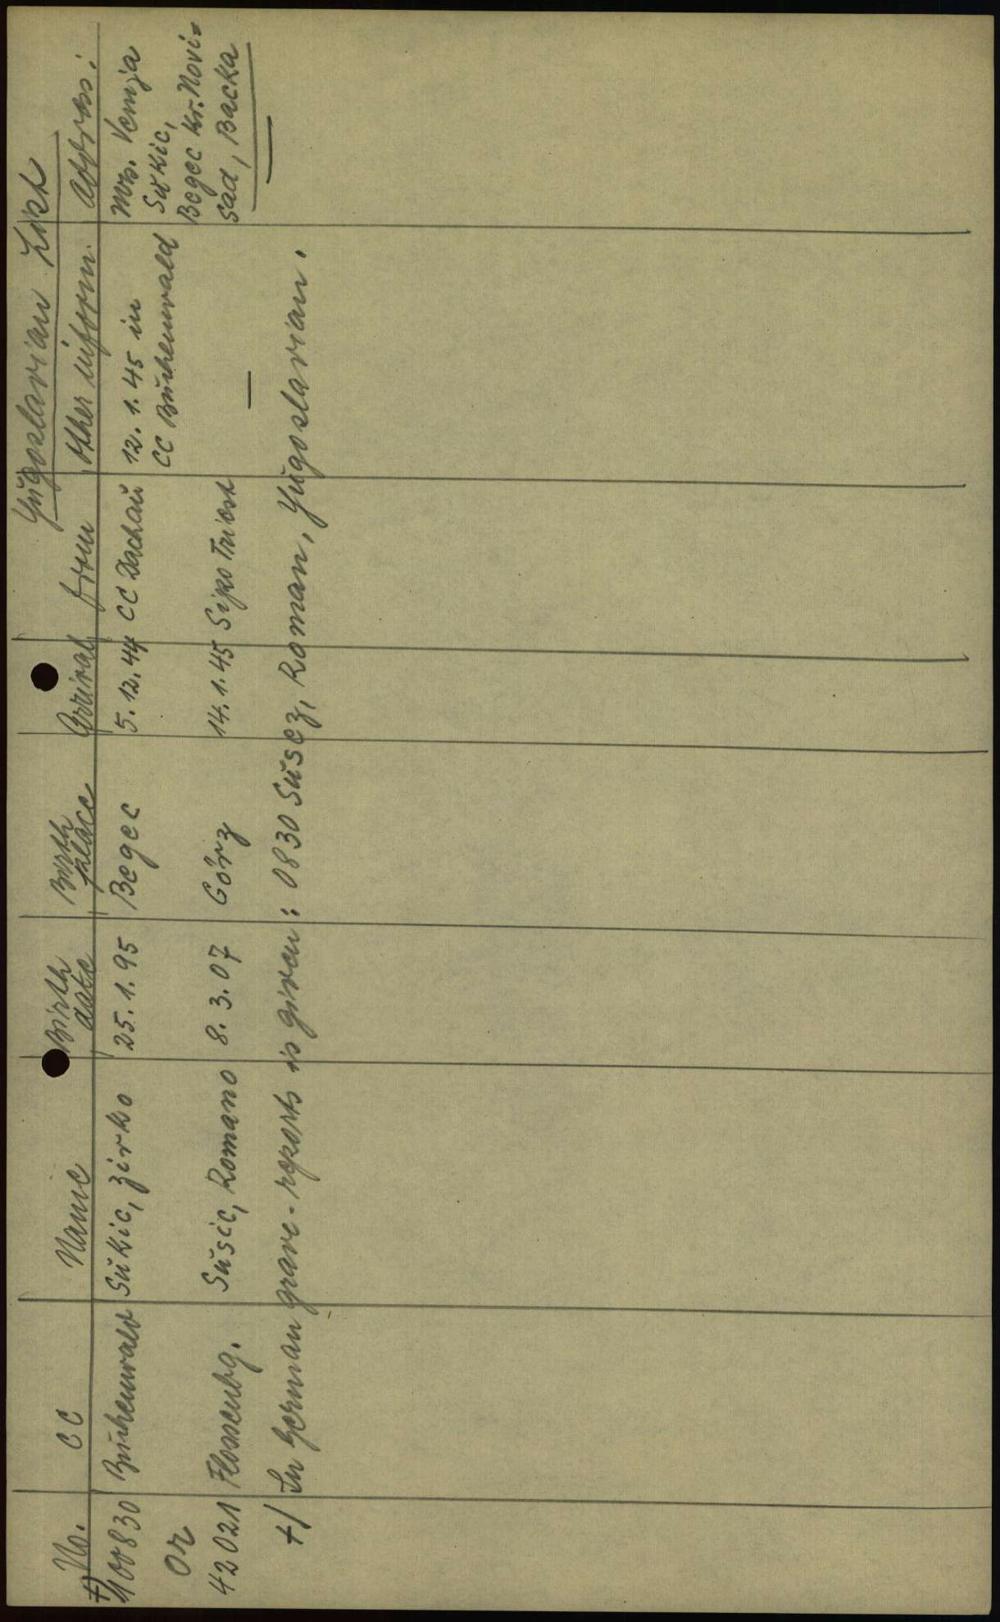 Yugoslavian List
No. CC Name Birth date Birth place Arrival from Other inform. Address:
+) 100830 Buchenwald Sŭkic, Zirko 25.1.95 Begec 5.12.44 CC Dachaŭ 12.1.45 in Mrs. Vemja
CC Bŭchenwald Sŭkic,
or Begec Kr. Novi-
42021 Flossenbg. Sŭsic, Romano 8.3.07 Görz 14.1.45 Sipo Triest — sad, Backa
—
+/ In German grave-reports is given: 0830 Sŭsez, Roman, Yŭgoslavian.